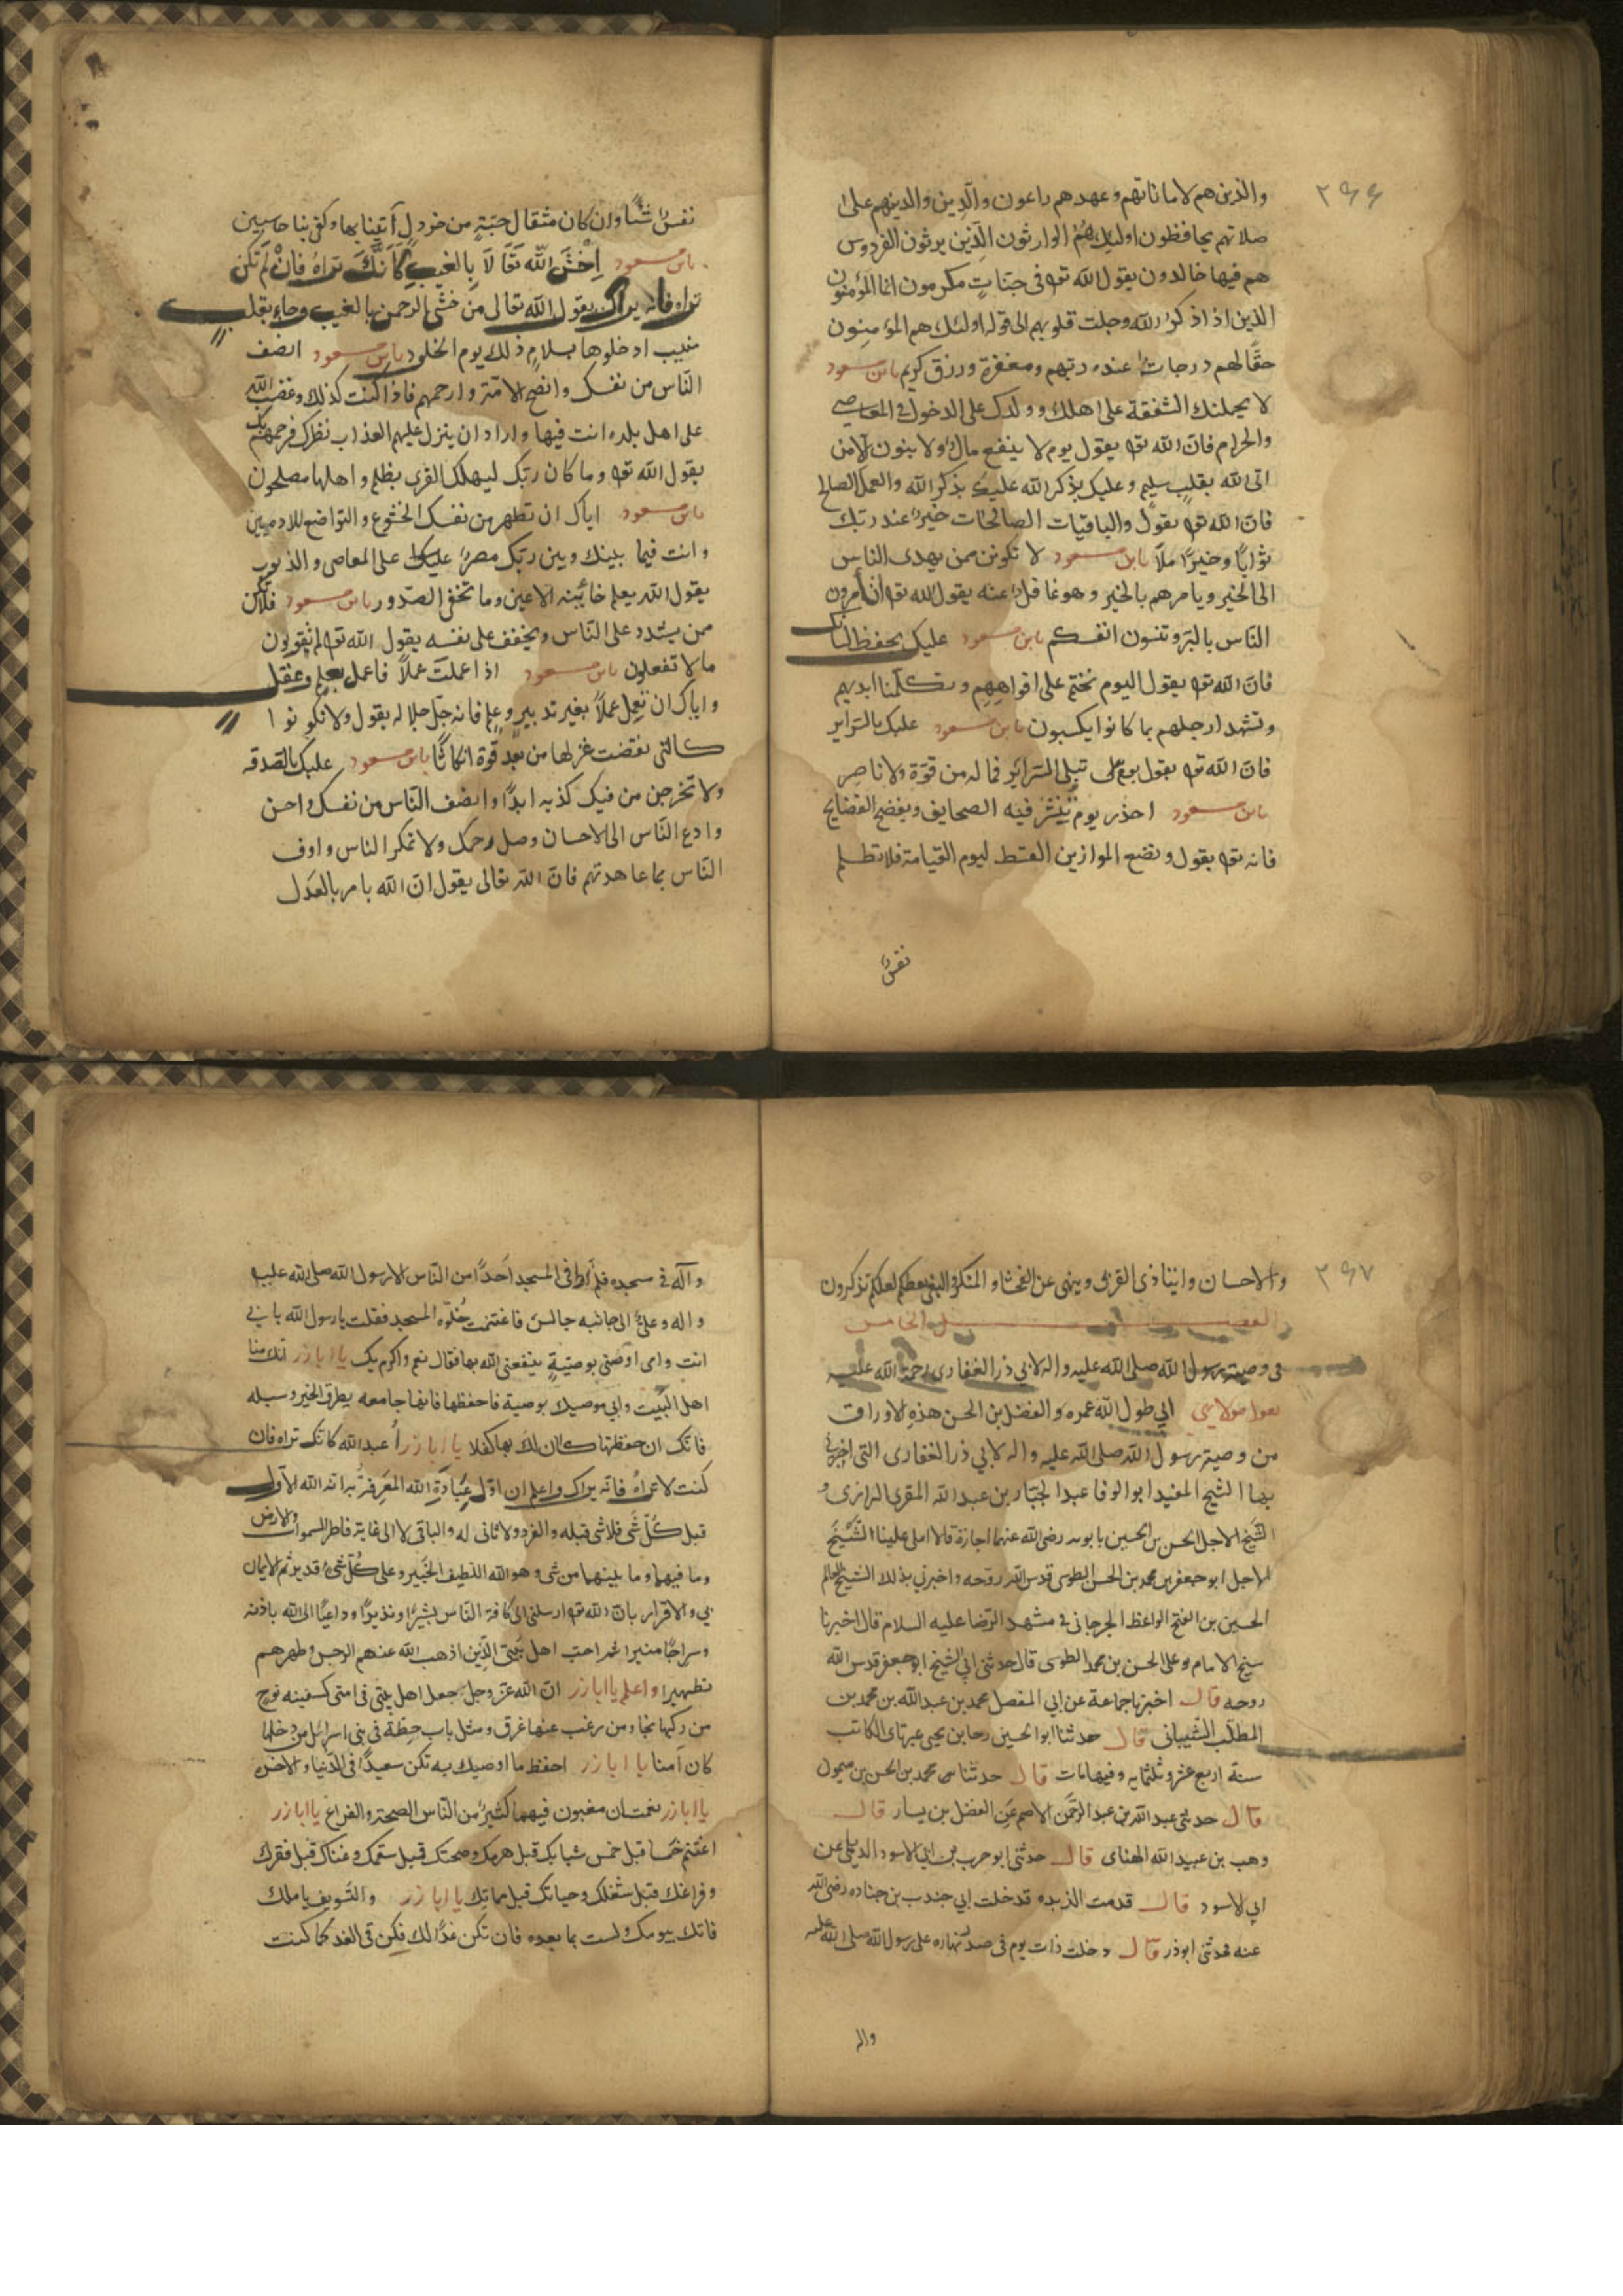 ٢٩٦
والذين هم لاماناتهم وعهدهم راعون والذين والذينهم على
صلاتهم يحافظون اولئك هم الوارثون الذين يرثون الفردوس
هم فيها خالدون يقول الله تع فى جنات مكرمون انما المؤمنون
الذين اذا ذكر الله وجلت قلوبهم الى قوله اولئك هم المؤمنون
حقًا لهم درجات عند ربهم ومغفرة ورزق كريم يابن مسعود
لا يحملنك الشفقة على اهلك وولدك على الدخول فى المعاصى
والحرام فان الله تع يقول يوم لا ينفع مال ولا بنون الا من
اتى الله بقلب سليم وعليك بذكر الله عليك بذكر الله والعمل الصالح
فان الله تع يقول والباقيات الصالحات خير عند ربك
ثوابًا وخيرًا ملًا يابن مسعود لا تكونن ممن يهدى الناس
الى الخير ويامرهم بالخير وهو غافل عنه يقول الله تع اتأمرون
الناس بالبر وتنسون انفسكم يابن مسعود عليك بحفظ لسانك
فان الله تع يقول اليوم نختم على افواههم وتكلمنا ايديهم
وتشهد ارجلهم بما كانوا يكسبون يابن مسعود عليك بالسراير
فان الله تع يقول يوم تبلى السراير فما له من قوة ولا ناصر
يابن مسعود احذر يوم ينشر فيه الصحايف ويفضح الفضايح
فانه تع يقول ونضع الموازين القسط ليوم القيامة فلا تظلم
نفس
نفس شيئًا وان كان مثقال حبة من خردل آتينا بها وكفى بنا حاسبين
يابن مسعود اخش الله تعالا بالغيب كانك تراه فان لم تكن
تراه فانه يراك يقول الله تعالى من خشى الرحمن بالغيب وجاء بقلب
منيب ادخلوها بسلام ذلك يوم الخلود يابن مسعود انصف
الناس من نفسك وانصح الامة وارحمهم فاذا كنت كذلك وغضب الله
على اهل بلده انت فيها واراد ان ينزل عليهم العذاب نظرك فرحمهم بك
يقول الله تع وما كان ربك ليهلك القرى بظلم واهلها مصلحون
يابن مسعود اياك ان تظهر من نفسك الخشوع والتواضع للادميين
وانت فيما بينك وبين ربك مصر على المعاصى والذنوب
يقول الله يعلم خائنه الاعين وما تخفى الصدور يابن مسعود فلا تكن
ممن يشدد على الناس ويخفف على نفسه يقول الله تع لم تقولون
مالا تفعلون يابن مسعود اذا عملت عملاً فاعمل بعلم وعقل
واياك ان تعمل عملاً بغير تدبير وعلم فانه جل جلاله يقول ولا تكونوا
كالتى نقضت غزلها من بعد قوة انكاثًا يابن مسعود عليك بالصدقه
ولا تخرجن من فيك كذبه ابدًا وانصف الناس من نفسك واحسن
وادع الناس الى الاحسان وصل رحمك ولا تمكر الناس واوف
الناس بما عاهدتهم فان الله تعالى يقول ان الله يامر بالعدل
٢٩٧
والاحسان وايتا ذى القربى وينهى عن الفحشا والمنكر والبغى يعظكم لعلكم تذكرون
الفصل الخامس
فى وصية رسول الله صلى الله عليه واله لابي ذر الغفارى رحمة الله عليه
يقول مولاى ابي طول الله عمره والفضل بن الحسن هذه الاوراق
من وصية رسول الله صلى الله عليه واله لابي ذر الغفارى التى اخبرنى
بها الشيخ المفيد ابو الوفا عبد الجبار بن عبد الله المقرى الرازى و
الشيخ الاجل الحسن بن الحسين بابويه رضى الله عنهما اجازة قالا املى علينا الشيخ
الاجل ابو جعفر بن محمد بن الحسن الطوسى قدس الله روحه واخبرني بذلك الشيخ العالم
الحسين بن الفتح الواعظ الجرجانى فى مشهد الرضا عليه السلام قال اخبرنا
شيخ الامام بو على الحسن بن محمد الطوسى قال حدثنى ابي الشيخ ابو جعفر قدس الله
روحه قال اخبرنا جماعة عن ابي المفضل محمد بن عبد الله بن محمد بن
المطلب الشيبانى قال حدثنا ابو الحسين رجا بن يحيى عبرتاى الكاتب
سنة اربع عشر وثلثمايه وفيها مات قال حدثنا محمد بن الحسن بن ميمون
قال حدثنى عبد الله بن عبد الرحمن الاصم عن الفضل بن يسار قال
وهب بن عبيد الله الهناى قال حدثنى ابو حرب بن ابي الاسود الديلى عن
ابي الاسود قال قدمت الربده قدخلت ابي جندب بن جناده رضى الله
عنه فحدثنى ابوذر قال دخلت ذات يوم فى صدر نهاره على رسول الله صلى الله عليه
واله
وآله فى مسجده فلم ار فى المسجد احدًا من الناس الا رسول الله صلى الله عليه
واله وعلىٌ الى جانبه جالس فاغتنمت خلوه المسجد فقلت يا رسول الله بابي
انت وامى اوصنى بوصية ينفعنى الله بها فقال نعم واكرم بك يا ابا ذر انك منا
اهل البيت واني موصيك بوصية فاحفظها فانها جامعه بطرق الخير وسبله
فانك ان حفظتها كان لك بها كفلا يا ابا ذر اعبد الله كانك تراه فان
كنت لا تراه فانه يراك واعلم ان اول عبادة الله المعرفة به انه الله الاول
قبل كل شى فلا شى قبله والفرد ولا ثانى له والباقى لا الى غاية فاطر السموات والارض
وما فيهما وما بينهما من شى وهو الله اللطيف الخبير وعلى كل شئ قدير ثم الايمان
بي والاقرار بان الله تع ارسلنى الى كافة الناس بشيرًا ونذيرًا وداعيًا الى الله باذنه
وسراجًا منيرا ثم احب اهل بيتى الذين اذهب الله عنهم الرجس وطهرهم
تطهيرا واعلم يا ابا ذر ان الله عز وجل جعل اهل بيتى فى امتى كسفينه نوح
من ركبها نجا ومن رغب عنها غرق ومثل باب حطة فى بنى اسرائيل من دخلها
كان آمنا يا ابا ذر احفظ ما اوصيك به تكن سعيدًا فى الدنيا والاخره
يا ابا ذر نعمتان مغبون فيهما كثير من الناس الصحة والفراغ يا ابا ذر
اغتنم خمسا قبل خمس شبابك قبل هرمك وصحتك قبل سقمك وغناك قبل فقرك
وفراغك قبل شغلك وحياتك قبل مماتك يا ابا ذر والتسويف باملك
فانك بيومك ولست بما بعده فان تكن غدًا لك فكن فى الغد كما كنت